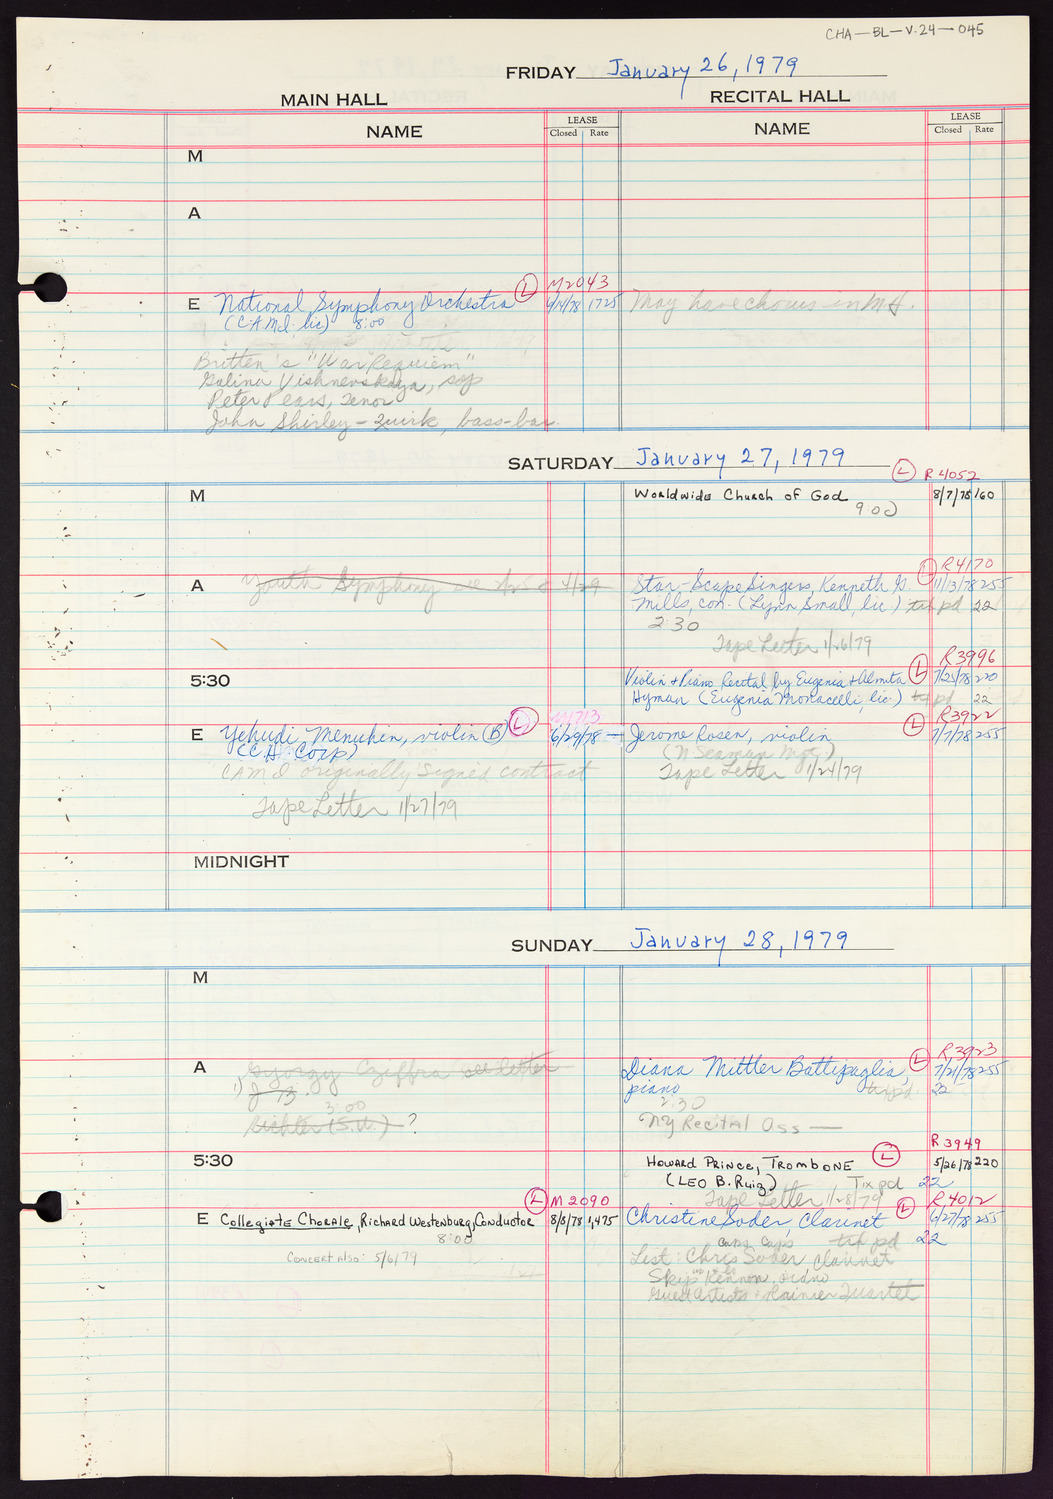 CHA-BL-V.24-045
FRIDAY January 26, 1979
MAIN HALL RECITAL HALL
NAME LEASE Closed Rate NAME LEASE Closed Rate
M
A
(L) M2043
E National Symphony Orchestra 4/14/78 1725 May have chorus in MH.
(C.A.M.I. lic) 8:00
Britten's "War Requiem"
Galina Vishnevskaya, sop
Peter Pears, Tenor
John Shirley-Quirk, bass-bar.
SATURDAY January 27, 1979
(L) R4052
M Worldwide Church of God 8/7/78 160
9:00
(L) R4170
A Youth Symphony 4/29 Star-Scape Singers, Kenneth G. 11/13/78 255
Mills, con. (Lynn Small, lic.) tix pd 22
2:30
Tape Letter 1/26/79
(L) R3996
5:30 Violin + Piano Recital by Eugenia + Almita 7/25/78 220
Hyman (Eugenia Monacelli, lic.) tix pd 22
(L) R3922
E Yehudi Menuhin, violin (B) (L) 6/29/78 — Jerome Rosen, violin 7/7/78 255
(C.H. Corp) (N Seaman Mgt.)
CAMI originally signed contract Tape Letter 1/24/79
Tape Letter 1/27/79
MIDNIGHT
SUNDAY January 28, 1979
M
(L) R3923
A Gyorgy Cziffra see letter Diana Mittler Battipaglia, 7/21/78 255
piano tix pd. 22
3:00 2:30
Richter (S.H.) — ? NY Recital Ass —
R3949
5:30 Howard Prince, Trombone (L) 5/26/78 220
(Leo B. Ruiz) Tix pd 22
Tape Letter 1/28/79
(L) M2090 (L) R4012
E Collegiate Chorale, Richard Westenburg, Conductor 8/8/78 1,475 Christine Soder, Clarinet 6/27/78 255
8:00 caps Caps tix pd 22
Concert also: 5/6/79 List: Chris Soder clarinet
Skip Kennon, piano
Guest Artists: Rainier Quartet